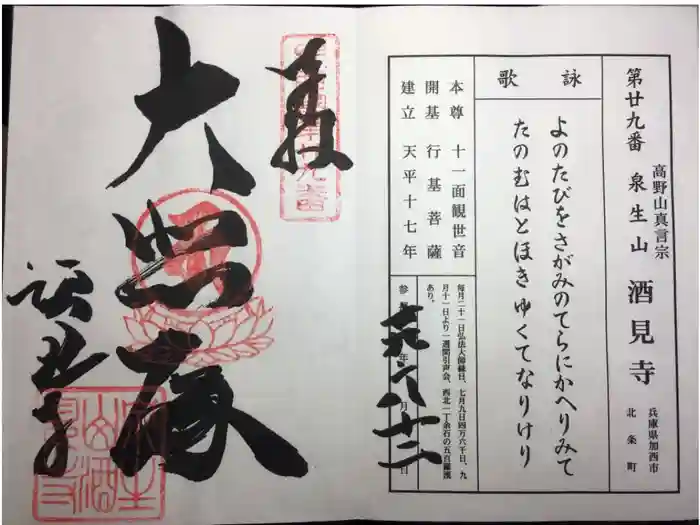 第廿九番 泉生山 酒見寺
高野山真言宗
兵庫県加西市
北条町
詠歌
よのたびをさがみのてらにかへりみて
たのむはとほきゆくてなりけり
本尊 十一面観世音
開基 行基菩薩
建立 天平十七年
毎月二十一日弘法大師縁日、七月九日四万六千日、九
月十一日より一週間引声会、西北一丁余石の五百羅漢
あり。
年 月 日
奉拝
酒見寺